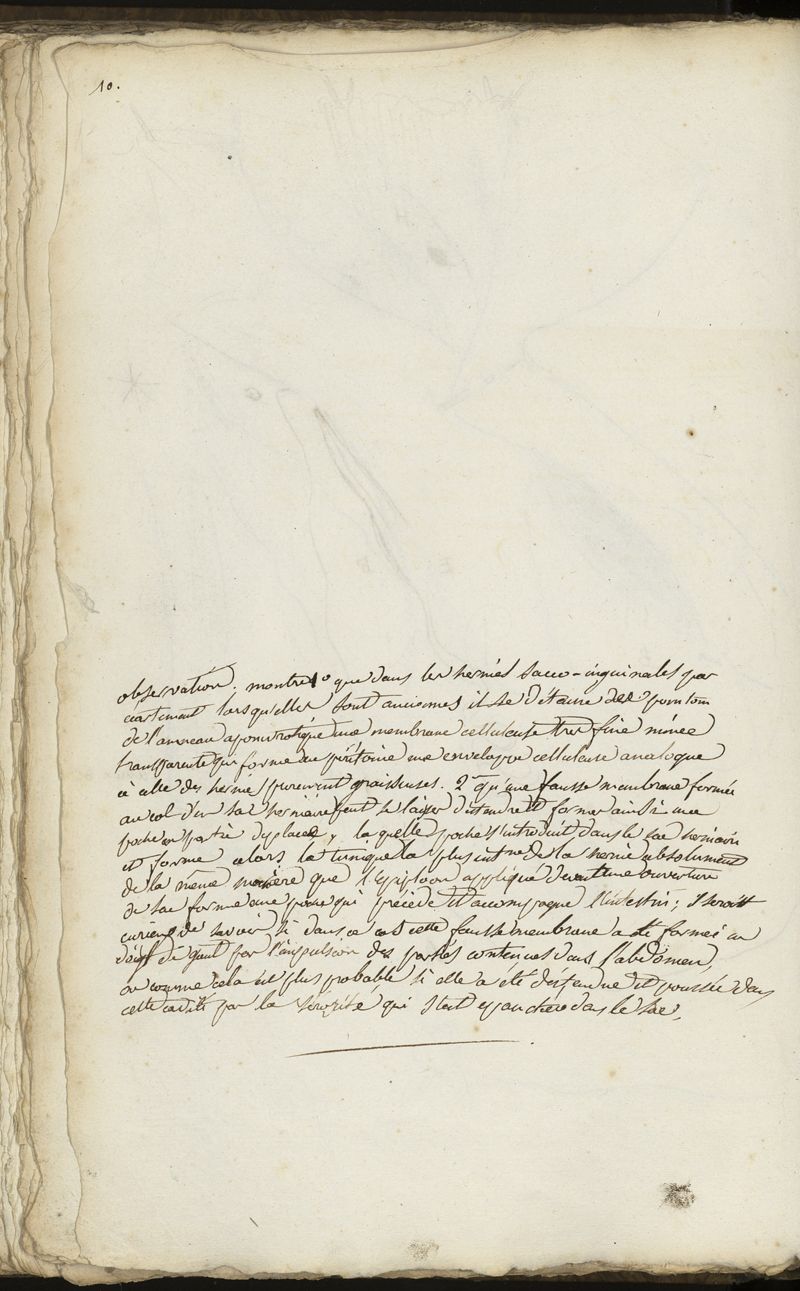 10.
observation. montre 1o que dans les hernies sacco-inguinales par
écartement lorsqu'elles sont anciennes il se détache des
de l'anneau aponevrotique une membrane celluleuse tres fine mince
transparente qui forme au péritoine une enveloppe celluleuse analogue
à celle des hernies purement graisseuses. 2 qu'une fausse membrane formée
au col d'un sac herniaire peut se laisser distendre et former ainsi une
poche en partie deplacée, la quelle poche s'introduit dans le sac herniaire
et forme alors la tunique la plus interne de la hernie absolument
de la même manière que l'epiploon appliqué devant une ouverture
de sac forme une poche qui précède et accompagne l'intestin; il seroit
curieux de savoir si dans ce cas cette fausse membrane a été formée en
doigt de gant par l'impulsion des parties contenues dans l'abdomen,
ou comme cela est plus probable si elle a été distendue et poussée dans
cette cavité par la sérosité qui s'est epanchée dans le sac.